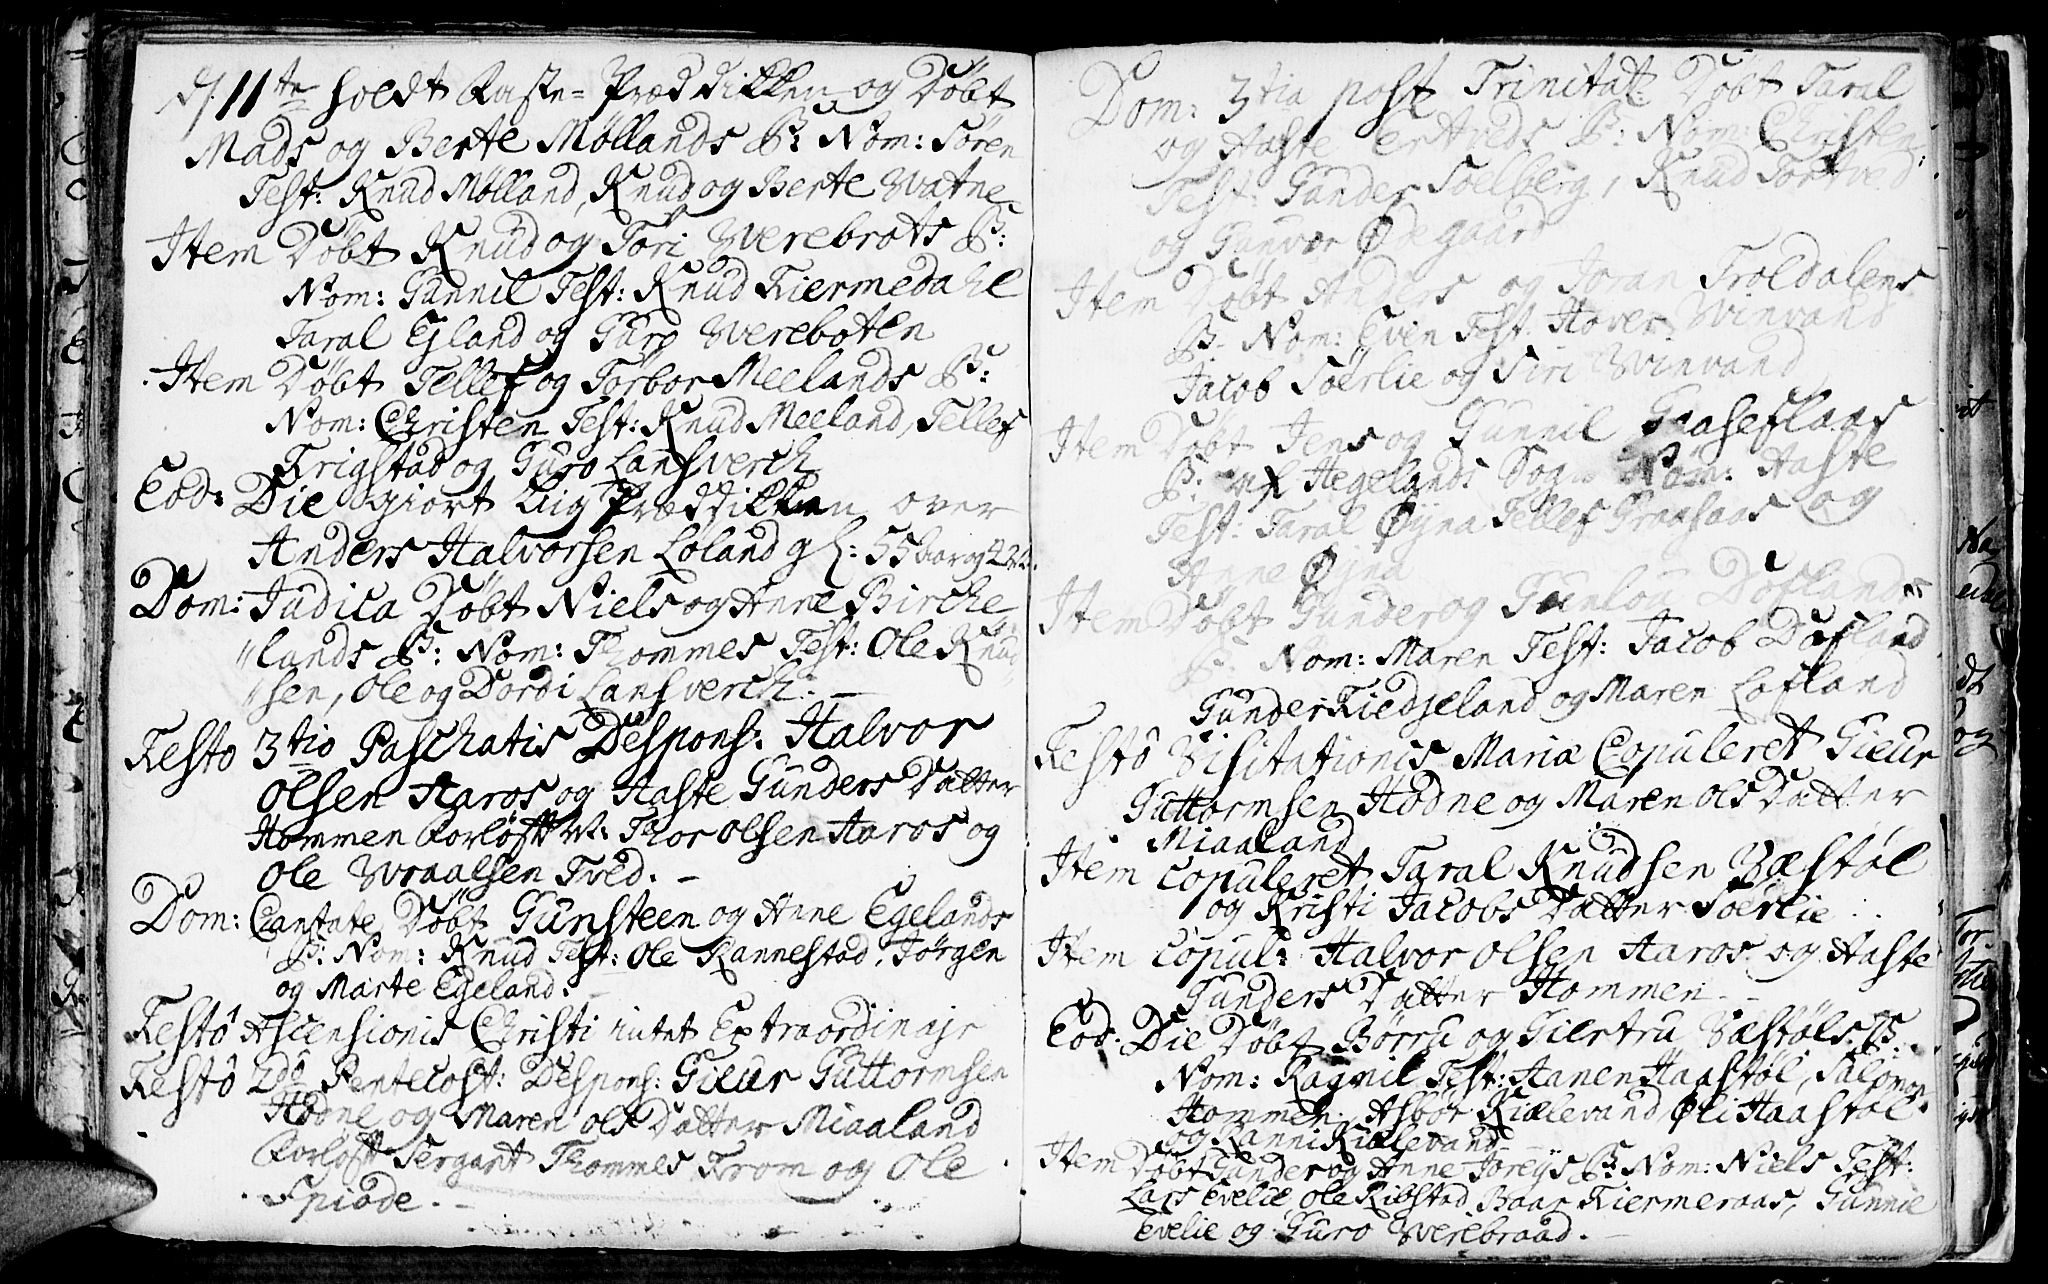 d. 11te holdt Faste-Præddikken og Døbt
Mads og Berte Møllands B: Nom: Søren
Test: Knud Mølland, Knud og Berte Watne
Item Døbt Knud og Tori Werebrots B:
Nom: Gunnil Test: Knud Fiermedahl
Taral Egland og Guro Wereboten
Item Døbt Tellef og Torbor Meelands B:
Nom: Christen Test: Knud Meeland, Tellef
Frigstad og Guro Lansverch
Eod: Die giort Liig Præddikken over
Anders Halvorsen Loland gl: 55 aar og
Dom: Judica Døbt Niels og Anne Birche
"lands B: Nom: Thommes Test: Ole Knud
"sen, Ole og Dordi Lansverch. -
Festo 3tio Paschatis Despons: Halvor
Olsen Aaros og Aaste Gunders Datter
Hommen Forløft W: Thor Olsen Aaros og
Ole Wraalsen Tved. -
Dom: Cantate Døbt Gunsteen og Anne Egelands
B: Nom: Knud Test: Ole Kannestad, Jørgen
og Marte Egeland. -
Festo Ascensionis Christi intet Extraordinair
Festo 2do Pentecost: Despons: Gieur Guttormsen
Hodne og Maren Ols Datter Miaaland
Forløft Sergant Thommes From og Ole
Spiode. -
Dom: 3tia post Trinitat: Døbt Taral
og Aaste B: Nom: Christen
Test: Gunder Soelberg, Knud Tortved
og Gunvor Ødegaard
Item Døbt Anders og Joran Troldalens
B: Nom: Even Test: Haver Winvand
Jacob Søerlie og Siri Winvand
Item Døbt Jens og Gunnil Gaaseflaas
B: af Hegelands Sogn Nom: Aaste
Test: Taral Øyna Tellef Graasaas og
Anne Øyna
Item Døbt Gunder og Gunlou Doflands
B: Nom: Maren Test: Jacob Dofland
Gunder Kiedjeland og Maren Lofland
Festo Visitationis Mariæ Copuleret Gieur
Guttormsen Hodne og Maren Ols Datter
Miaaland
Item Copuleret Taral Knudsen Væstøl
og Kristi Jacobs Datter Søerlie
Item Copul: Halvor Olsen Aaros og Aaste
Gunders Datter Hommen - -
Eod: Die Døbt Børru og Giertru Væstøls B:
Nom: Ragnil Test: Aanen Haastøl, Salomon
Hommen, Asbør Kiælevand, Øli Haastøl
og Ranni Kiælevand
Item Døbt Gunder og Anne Joreijs B: Nom: Niels Test:
Lars Evelie Ole Ribstad Baar Fiermeraas, Gunnil
Evelie og Guro Werebraad. -